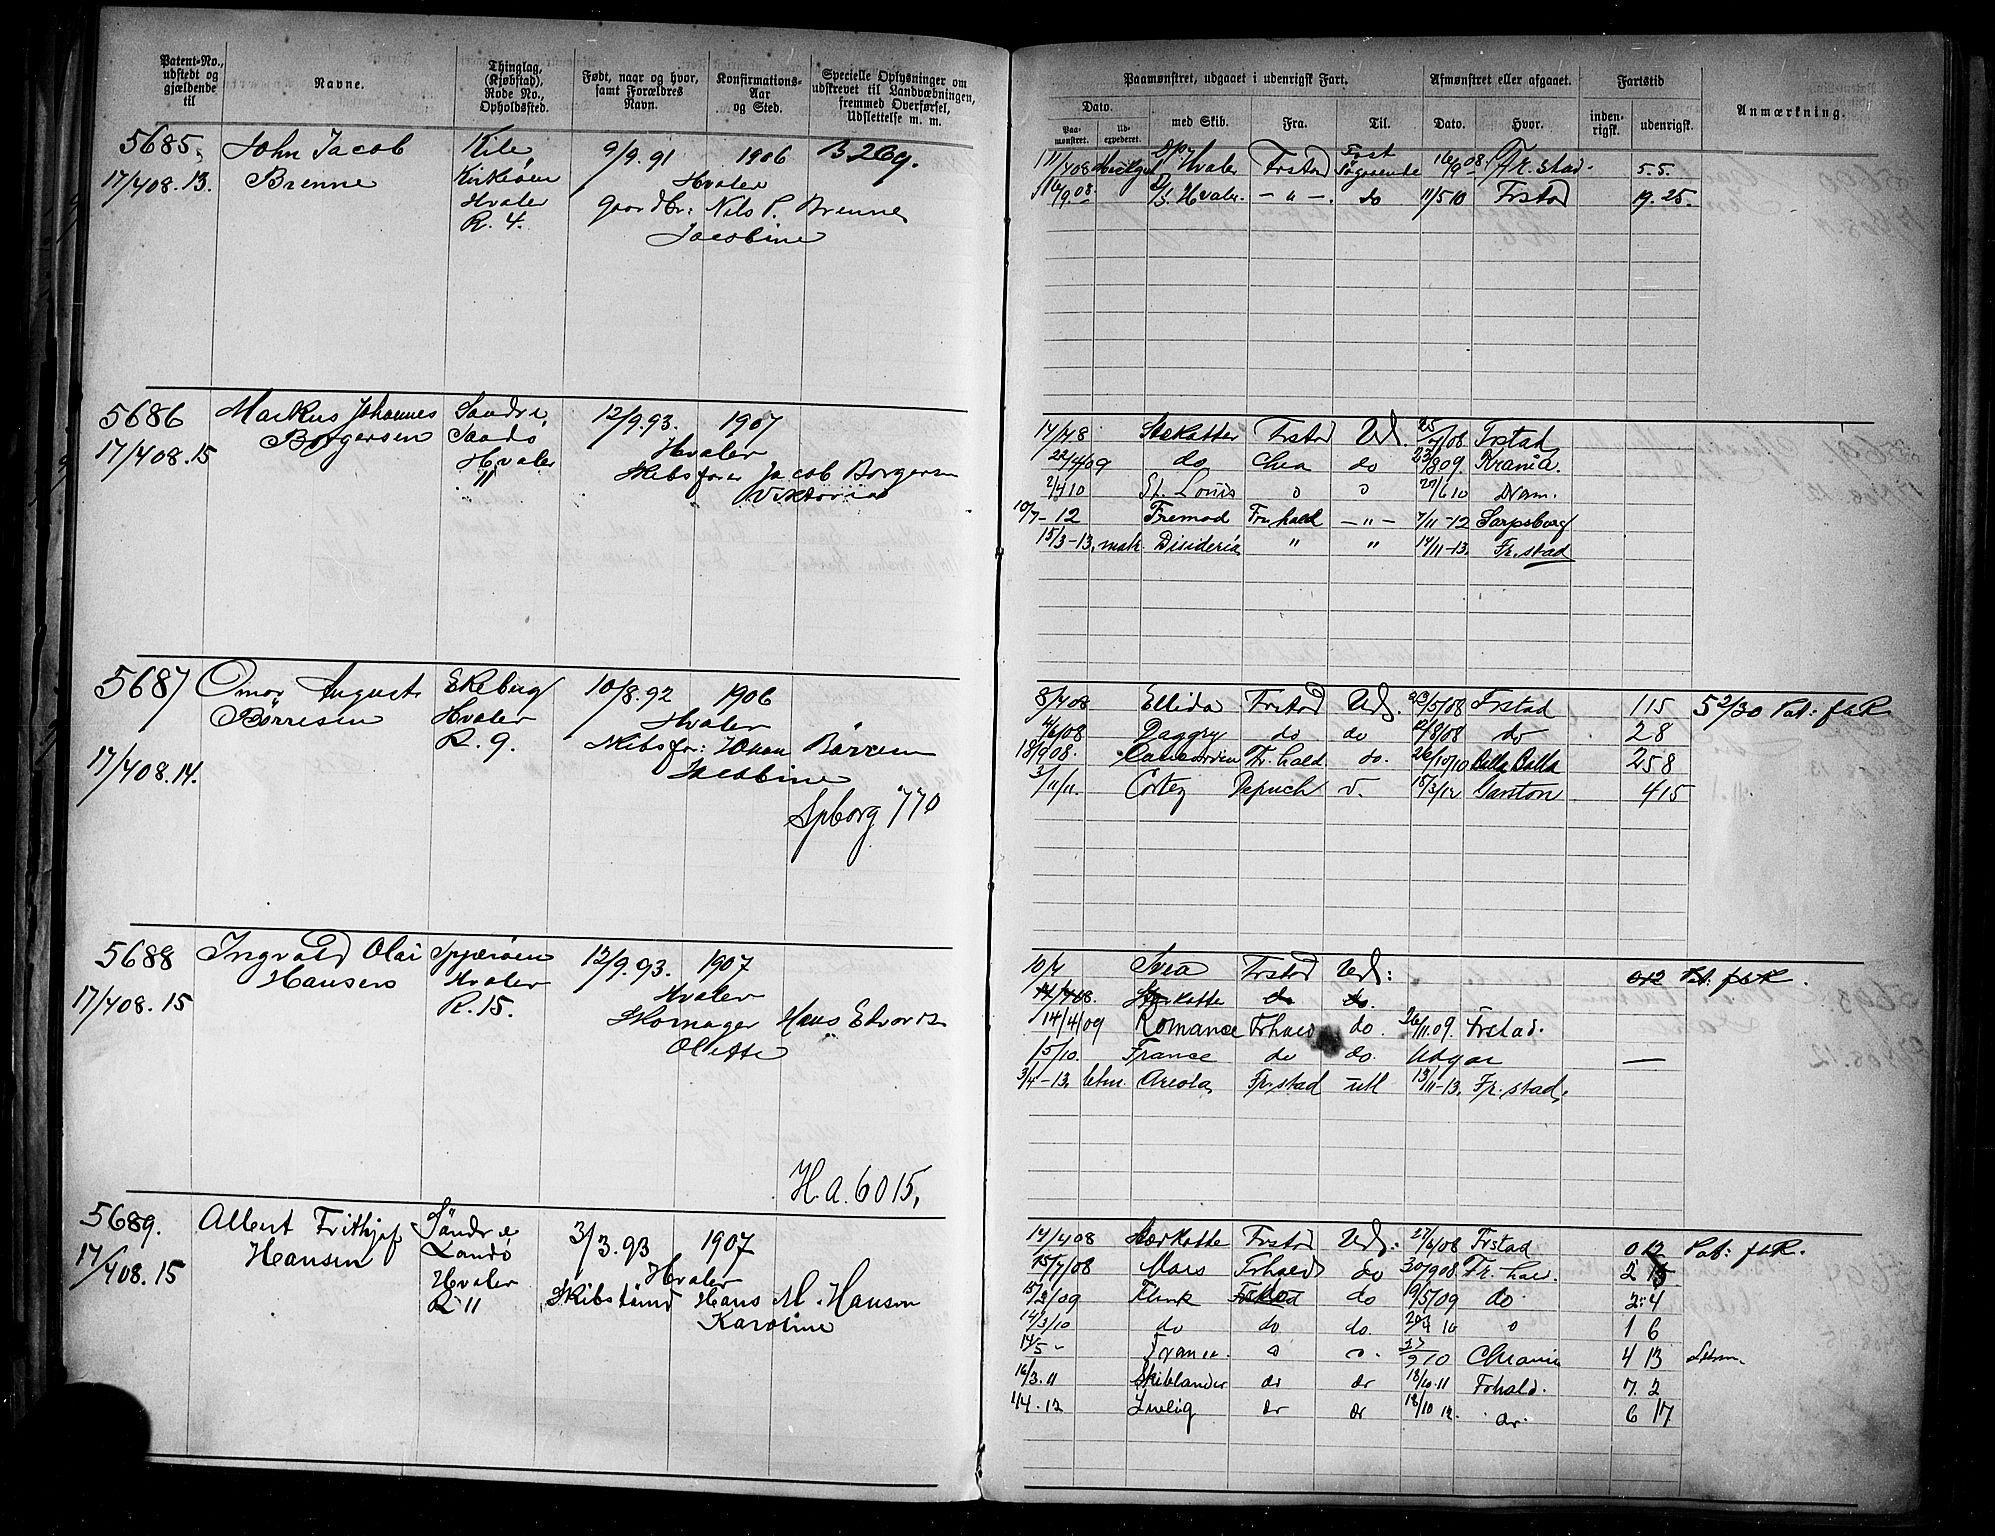 Patent-No., udstedt og gjældende til
Navne.
Thinglag, (Kjøbstad), Rode No., Opholdssted.
Født, naar og hvor, samt Forældres Navn.
Konfirmations-Aar og Sted.
Specielle Oplysninger om udskrevet til Landvæbningen, fremmed Overførsel, Udslettelse m. m.
Paamønstret, udgaaet i udenrigsk Fart.
Afmønstret eller afgaaet.
Fartstid
Anmærkning.
Dato.
Paa-mønstret.
Ud-expederet.
med Skib.
Fra.
Til.
Dato.
Hvor.
inden-rigsk.
udenrigsk.
5685 John Jacob Kile 9/9.91 1906 B269.
17/4 08.13. Brenne Kirkeøen Hvaler
Hvaler Gaardbr: Nils P. Brenne
R. 4. Jacobine
11/4 08 Hvaler Frstad 16/9 08 Fr.stad 5.5.
16/9 08 Hvaler - " - do 11/5 10 Frstad 19.25.
5686 Markus Johannes Søndre 12/9.93. 1907
17/4 08.15 Borgersen Sandø Hvaler
Hvaler Skibsfører Jacob Borgersen
11 Viktoria
17/4 8 Stærkatter Frstad Uds. 25/7/08 Frstad
22/4/09 do Chra do 23/8 09. Krania.
2/4 10 St. Louis o o 27/6 10 Dram.
10/7-12 Fremad Fr.hald -"- 7/11-12 Sarpsborg
15/3-13. matr. Disideria " " 14/11-13. Fr.stad
5687 Omar August Ekeberg 10/8.92 1906
Børresen Hvaler Hvaler
R. 9. Skibsfør: Johan Børresen
17/4 08.14. Jacobine
Spborg 770
8/4 08 Ellida Frstad Uds. 23/5/08 Frstad 115 5 2/30 Pat: fkR
4/6/08 Daggry do do 12/8/08 do 28
18/9 08. Concordia Fr.hald do. 26/10/10 258
3/11/11. Cortez v. 15/3/12 Garston 415
5688 Ingvald Olai Spjærøen 12/9.93. 1907
Hansen Hvaler Hvaler
17/4 08.15 R.15. Skomager Hans Edvards
Olette
H.a. 6015,
10/4 Svea Frstad Uds: 012 Pat. fkR.
14/4 08. Stærkatte do do.
14/4/09 Romance Frhald do. 26/11 09. Frstad.
1/5/10. France do do. Udgar —
3/4-13. letm. Areola Fr.stad utl 13/11-13. Fr.stad.
5689. Albert Frithjof Søndre 3/3.93 1907
17/4 08.15 Hansen Sandø Hvaler
Hvaler Skibstømd Hans M. Hansen
R 11 Karoline
14/4 08 Stærkatte Frstad Uds: 27/6/08 Frstad 0 12 Pat: fkR.
15/7/08 Mars Frhald do 20/9 08 Fr.hald. 2
15/2/09 Flink do 19/5/09 do 2:4
14/3/10 do do do. o 1 6
14/5 - France o o. 27/9 10 Chrania 4 13 Letm.
16/3.11 Skiblander do do 18/10.11 Frhald. 7.2
1/4.12 do do 18/10 12. do. 6 17